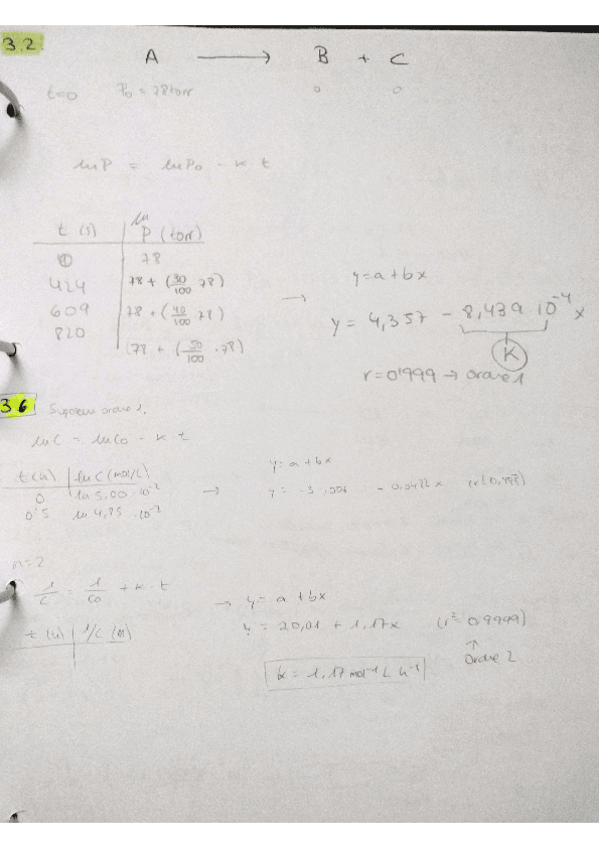 3.2
A → B + C
t=0 P₀ = 78 torr 0 0
lnP = lnP₀ - k t
t (s) ln P (torr)
0 78
424 78 + (30/100 78)
609 78 + (40/100 78)
820 (78 + (50/100 .78)
→ y = a + bx
y = 4,357 - 8,439 10⁻⁴ x
K
r = 0'999 → Orden 1
3.6 orden 1,
lnC = lnC₀ - k t
t(h) lnC (mol/L)
0 ln 5,00 · 10⁻²
0'5 ln 4,85 · 10⁻²
→ y = a + bx
n=2
1/C = 1/C₀ + k · t
t (h) 1/C (M)
→ y = a + bx
y = 20,01 + 1,17x (r² 0,9999)
↑
Orden 2
k = 1,17 mol⁻¹ L h⁻¹